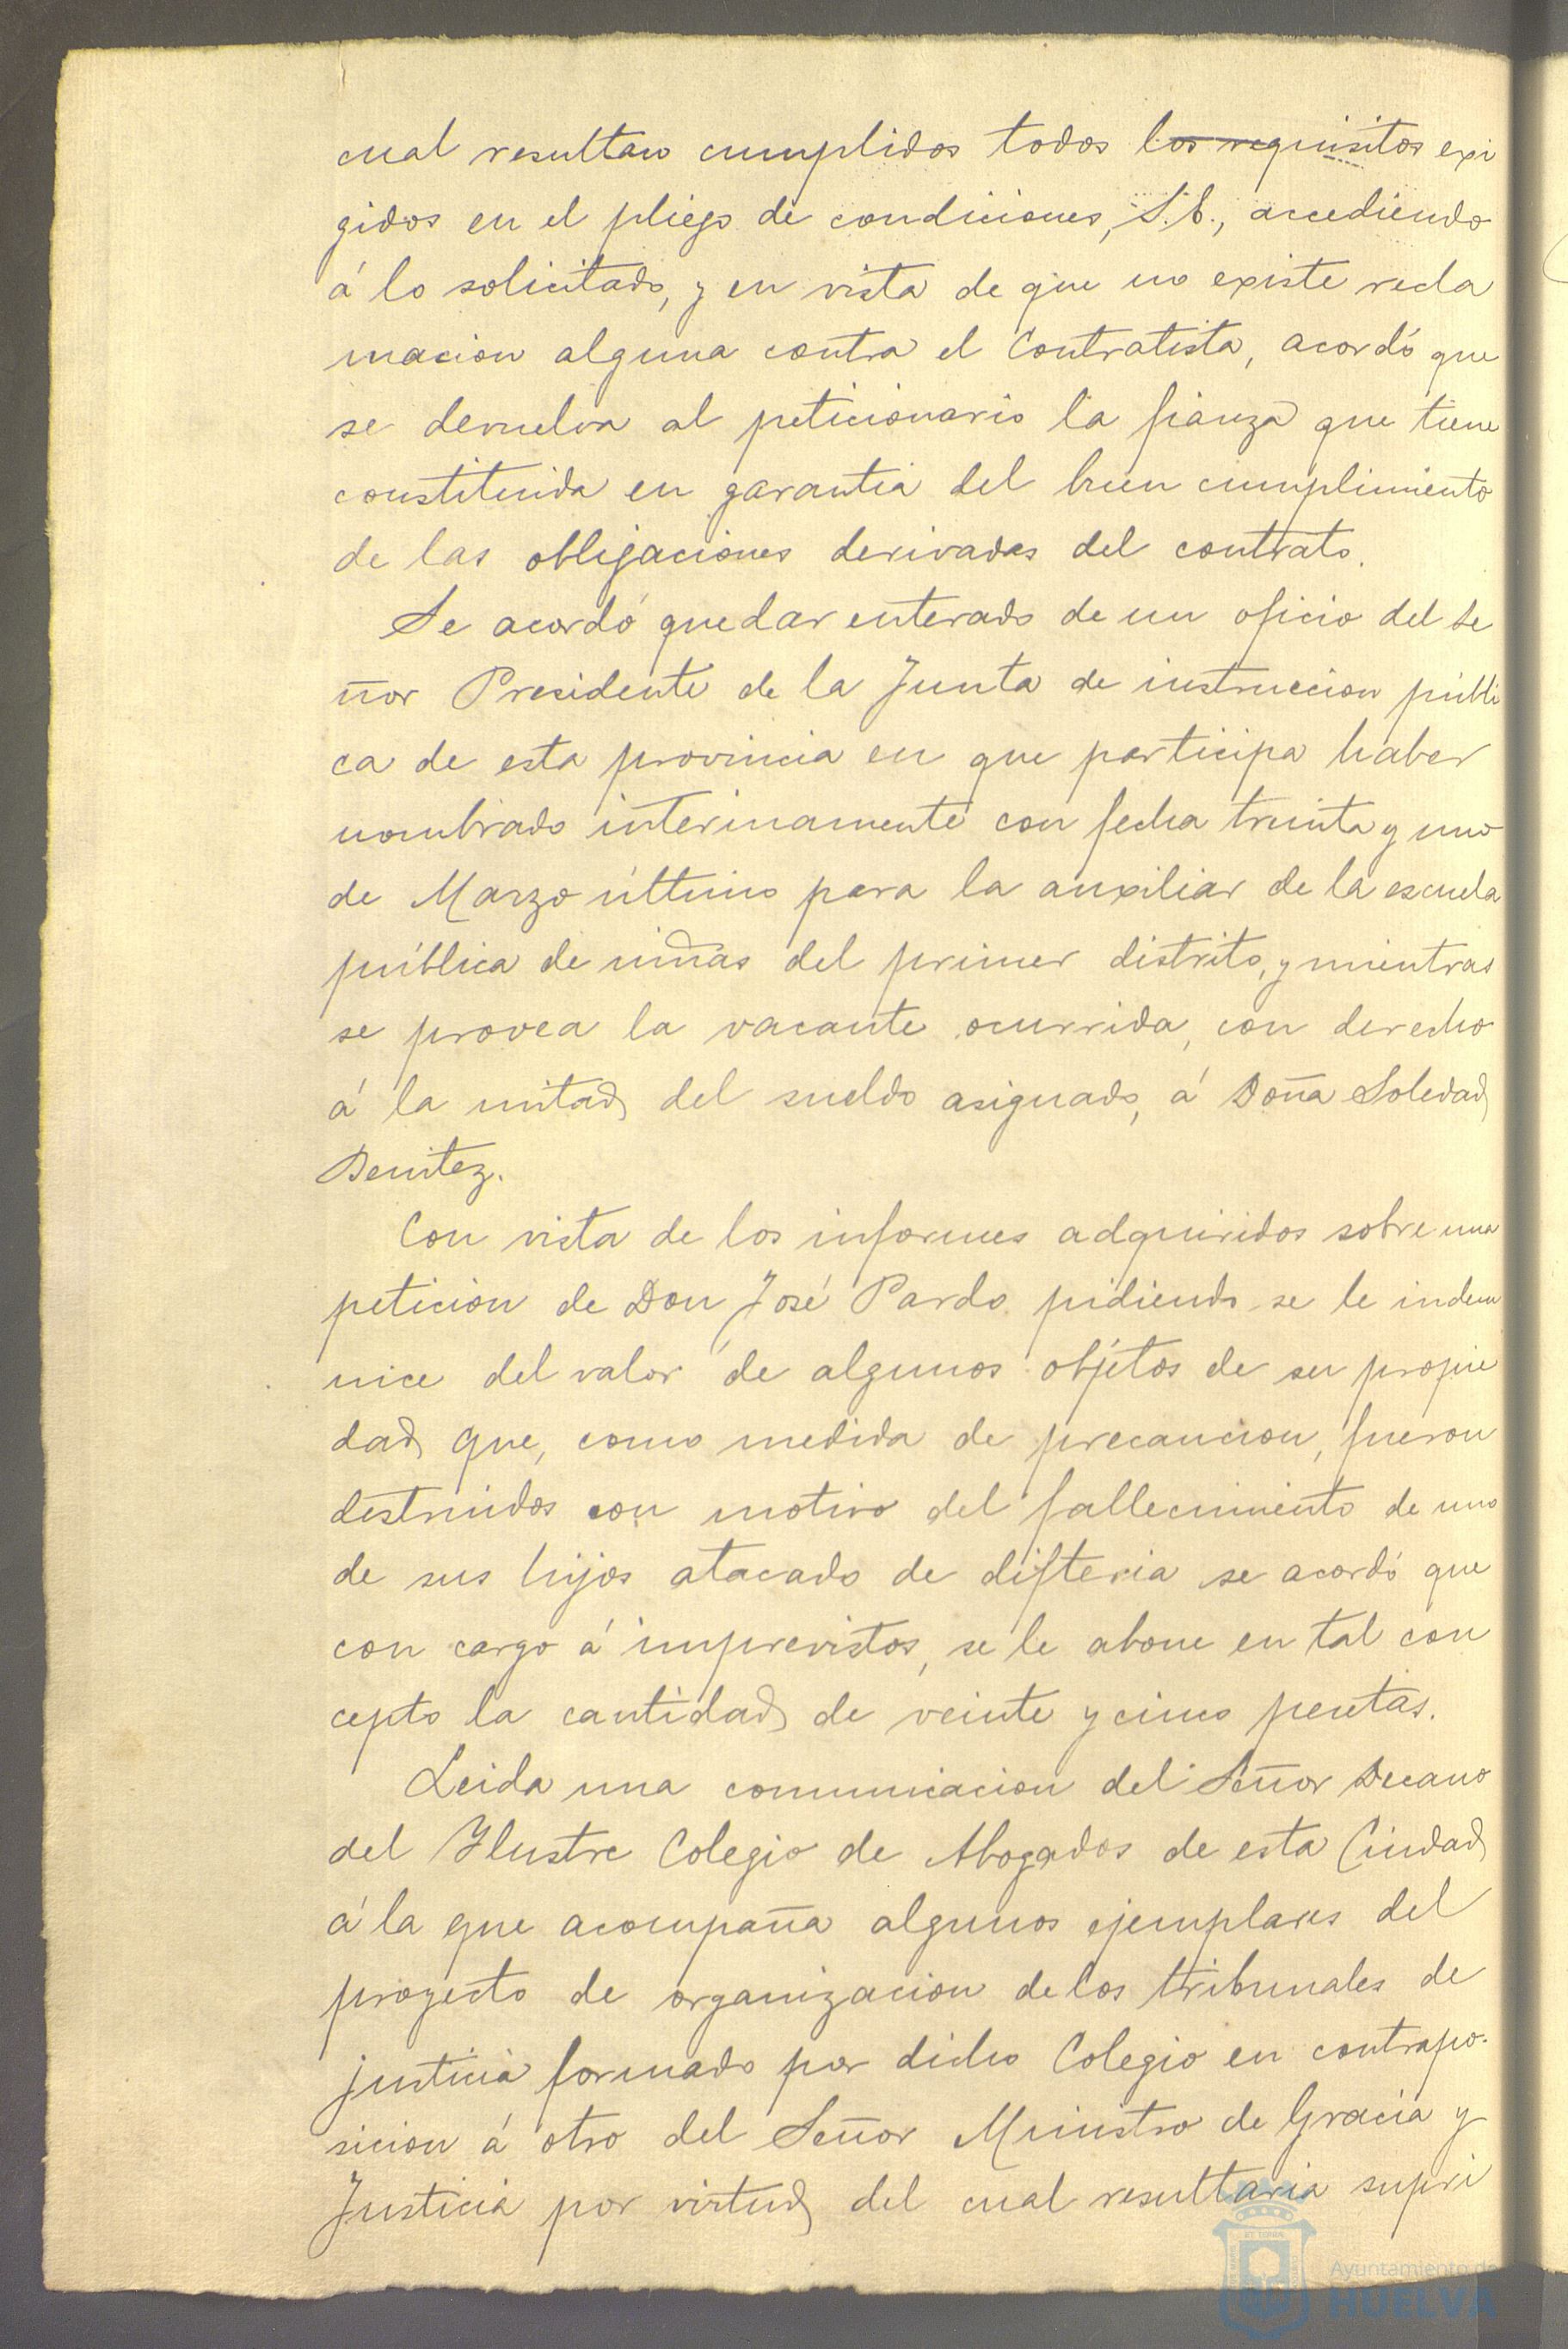 cual resultan cumplidos todos los requisitos exi
gidos en el pliego de condiciones, S.E., accediendo
á lo solicitado, y en vista de que no existe recla
macion alguna contra el Contratista, acordó que
se devuelva al peticionario la fianza que tiene
constituida en garantia del buen cumplimiento
de las obligaciones derivadas del contrato.
Se acordó quedar enterado de un oficio del Se
ñor Presidente de la Junta de instruccion públi
ca de esta provincia en que participa haber
nombrado interinamente con fecha treinta y uno
de Marzo último para la auxiliar de la escuela
pública de niñas del primer distrito, y mientras
se provea la vacante ocurrida, con derecho
á la mitad del sueldo asignado, á Doña Soledad
Benitez.
Con vista de los informes adquiridos sobre una
peticion de Don José Pardo pidiendo se le indem
nice del valor de algunos objetos de su propie
dad que, como medida de precaucion, fueron
destruidos con motivo del fallecimiento de uno
de sus hijos atacado de difteria se acordó que
con cargo á imprevistos, se le abone en tal con
cepto la cantidad de veinte y cinco pesetas.
Leida una comunicacion del Señor Decano
del Ilustre Colegio de Abogados de esta Ciudad
á la que acompaña algunos ejemplares del
proyecto de organizacion de los tribunales de
justicia formado por dicho Colegio en contrapo-
sicion á otro del Señor Ministro de Gracia y
Justicia por virtud del cual resultaria supri
Ayuntamiento de
HUELVA